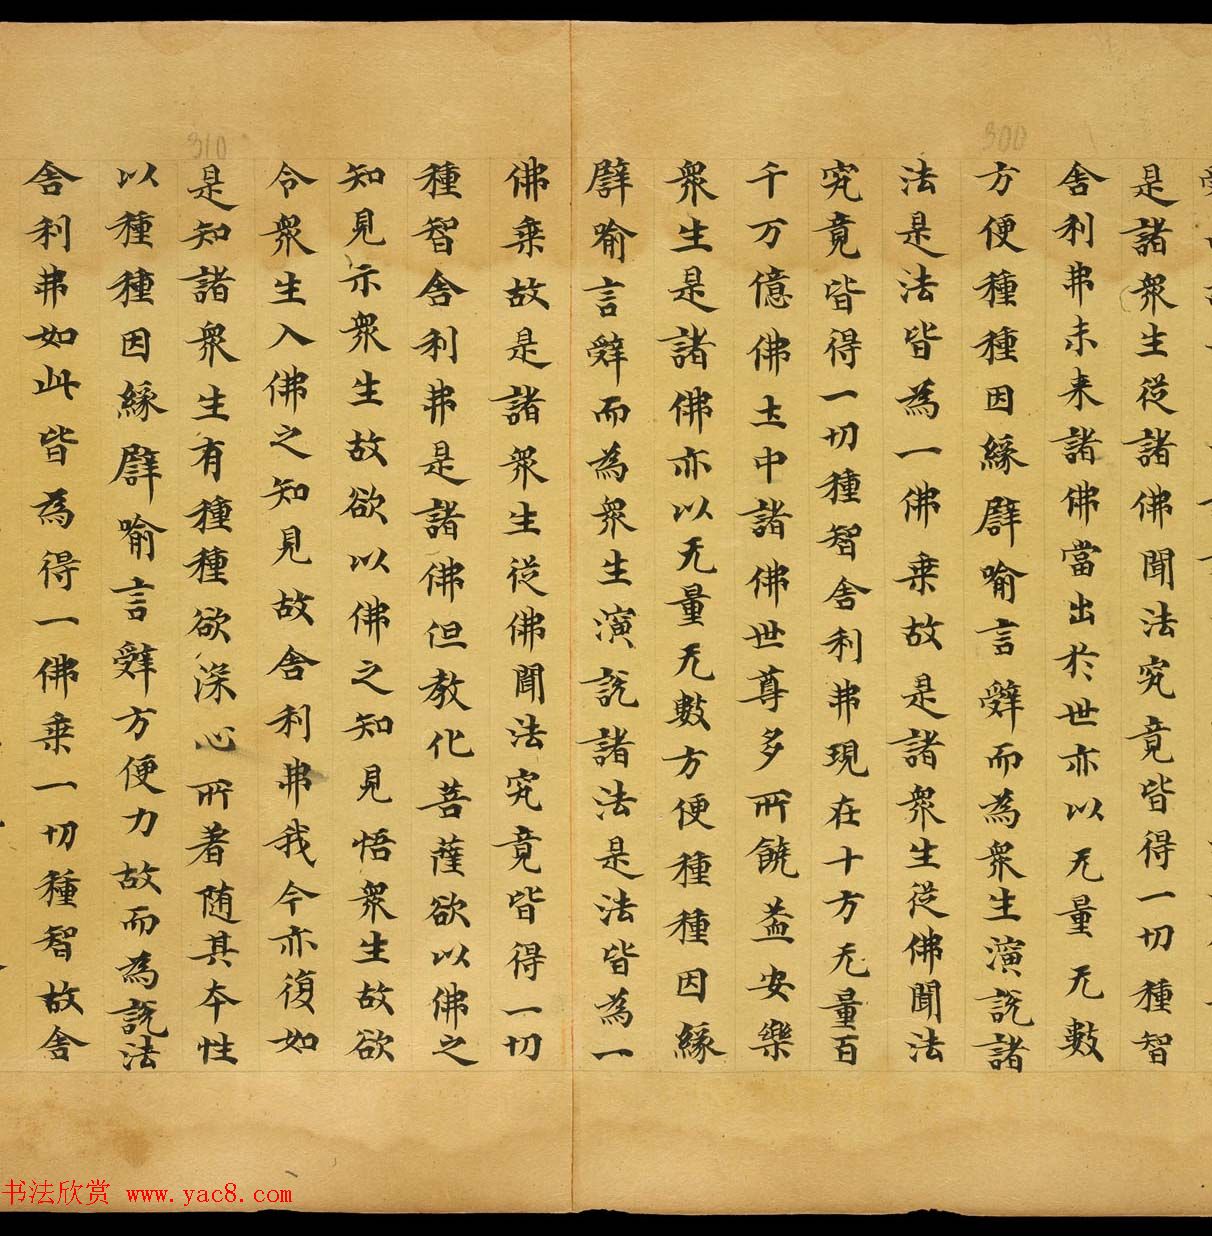 是諸衆生從諸佛聞法究竟皆得一切種智
舍利弗未来諸佛當出於世亦以无量无數
方便種種因緣譬喻言辭而為衆生演說諸
法是法皆為一佛乗故是諸衆生從佛聞法
究竟皆得一切種智舍利弗現在十方无量百
千万億佛土中諸佛世尊多所饒益安樂
衆生是諸佛亦以无量无數方便種種因緣
譬喻言辭而為衆生演說諸法是法皆為一
佛乗故是諸衆生從佛聞法究竟皆得一切
種智舍利弗是諸佛但教化菩薩欲以佛之
知見示衆生故欲以佛之知見悟衆生故欲
令衆生入佛之知見故舍利弗我今亦復如
是知諸衆生有種種欲深心所著随其本性
以種種因緣譬喻言辭方便力故而為說法
舍利弗如此皆為得一佛乗一切種智故舍
300
310
书法欣赏 www.yac8.com